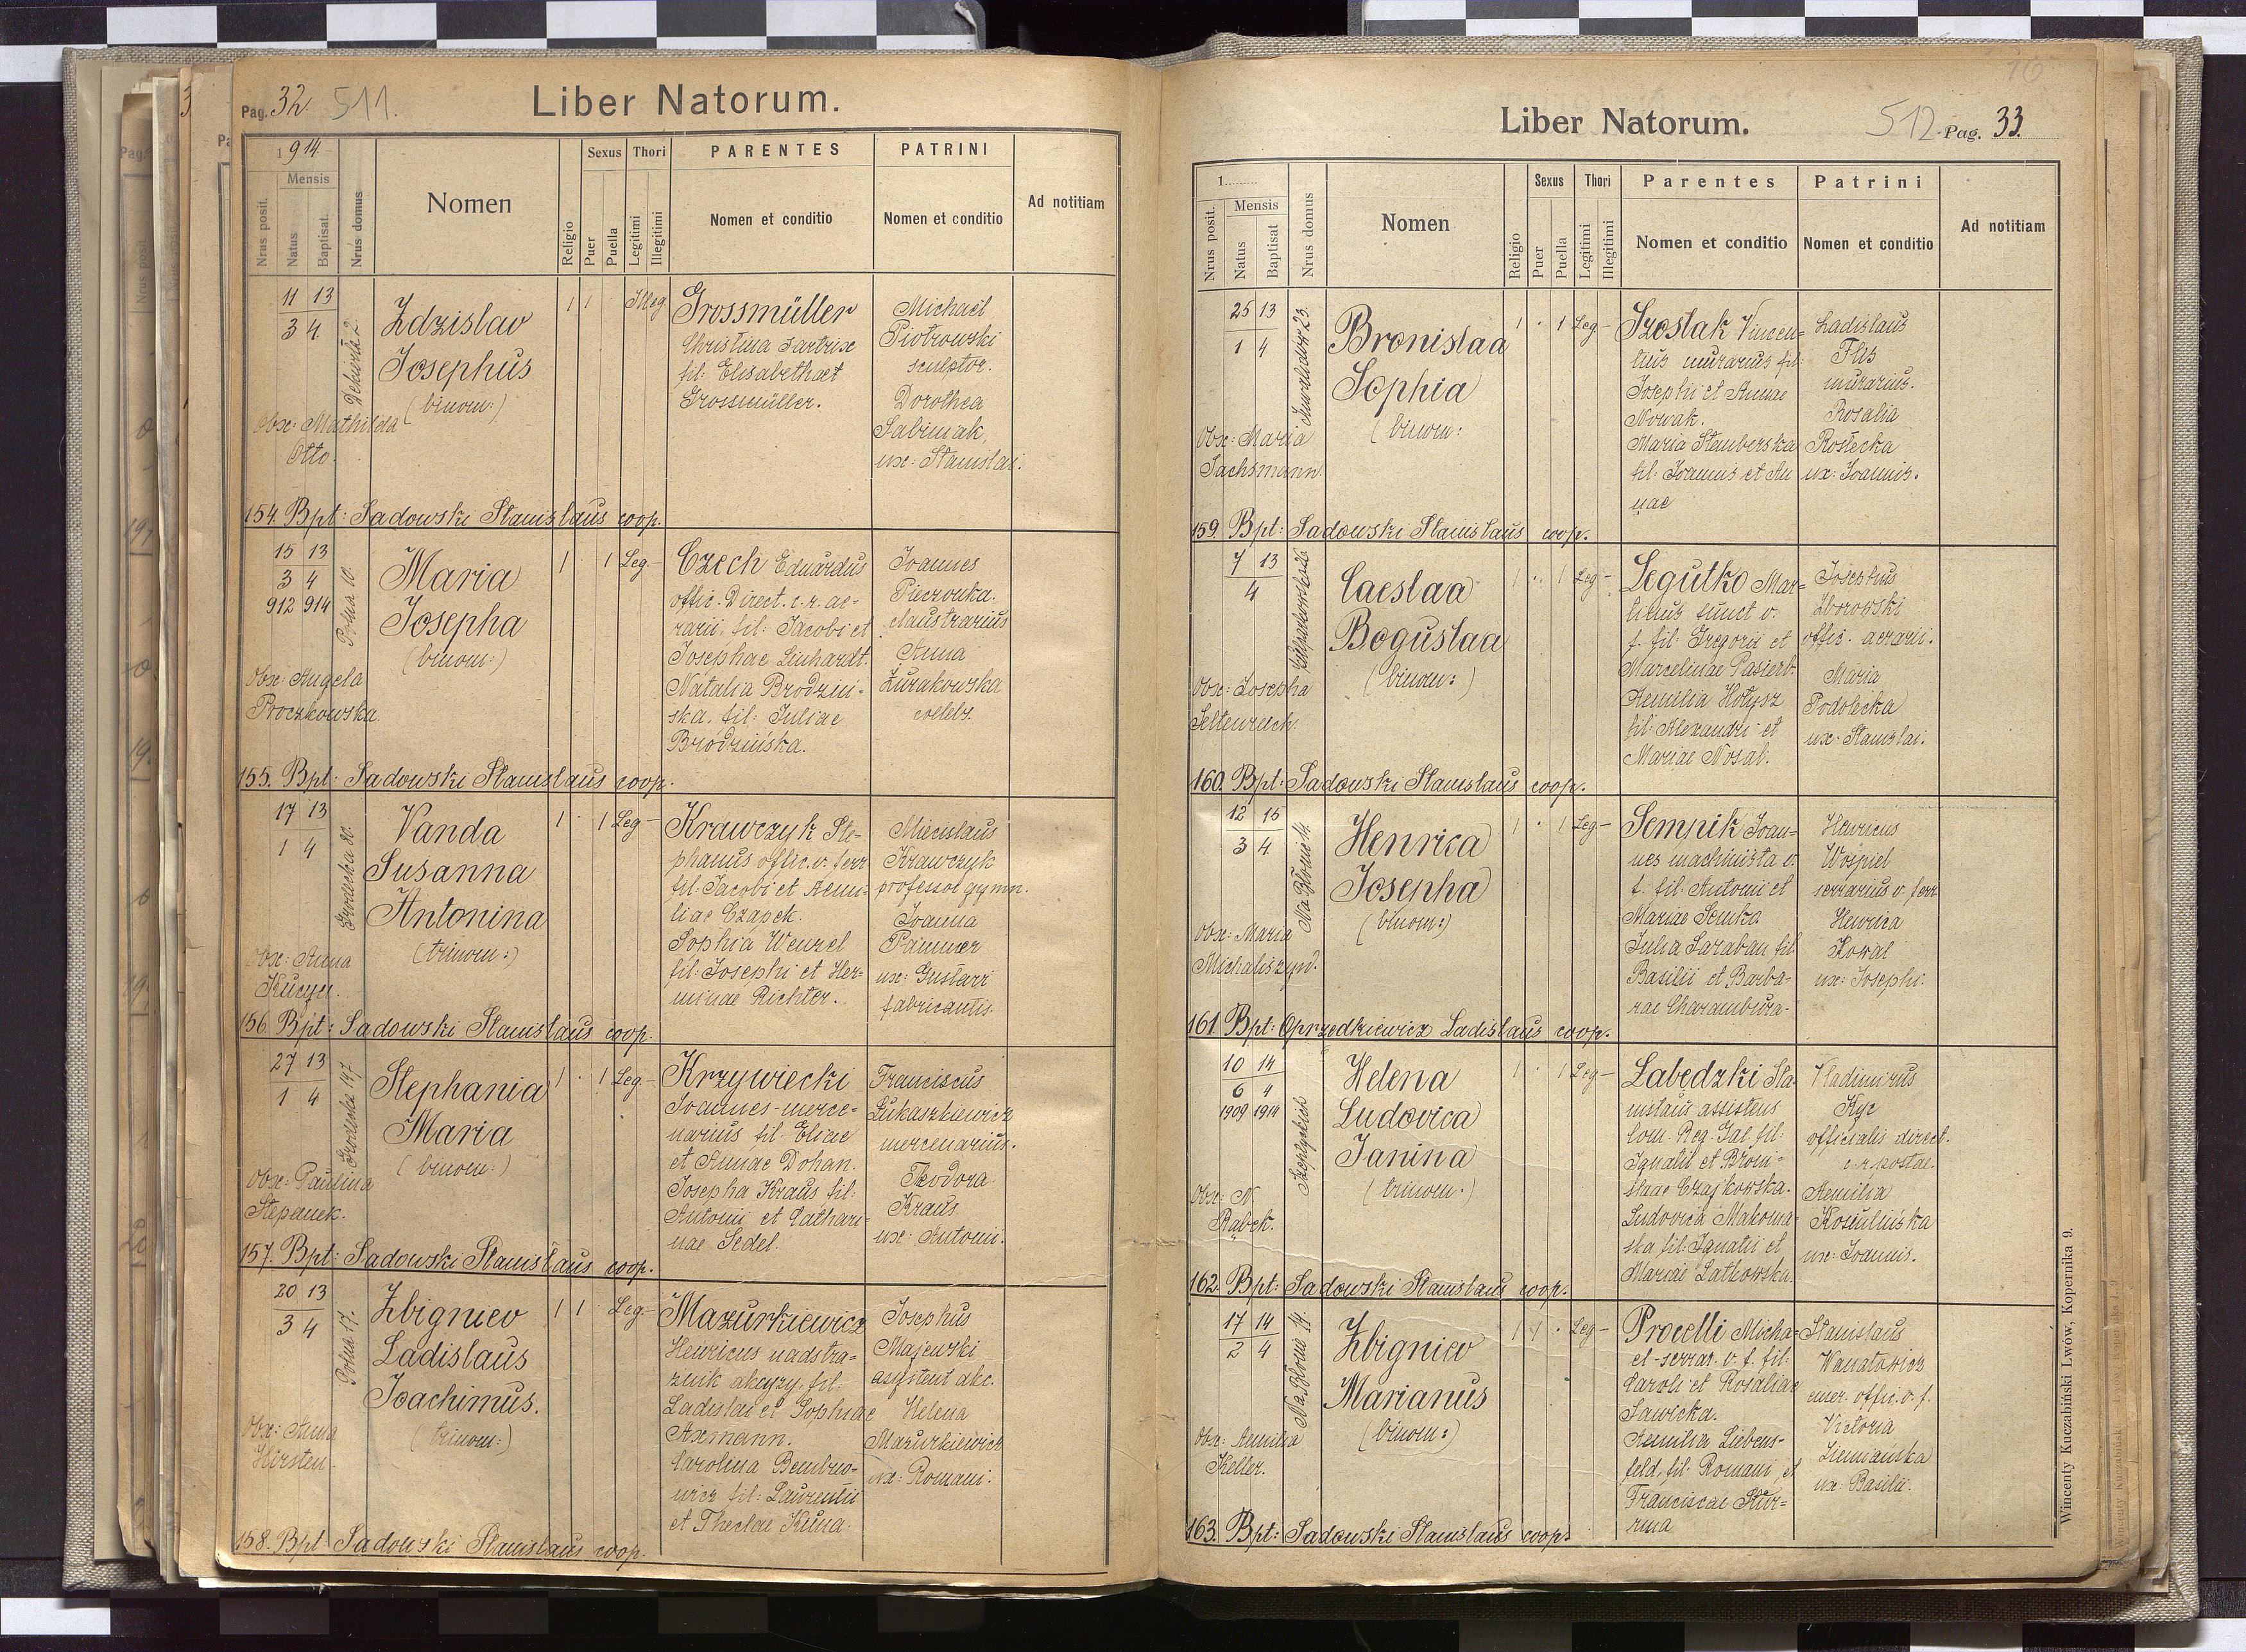 Pag. 32. 511.
Liber Natorum.
1914
Mensis
Nrus posit.
Natus
Baptisat.
Nrus domus
Nomen
Religio
Sexus
Puer
Puella
Thori
Legitimi
Illegitimi
PARENTES
Nomen et conditio
PATRINI
Nomen et conditio
Ad notitiam
11 13
3 4
Zdzislav
Josephus
(binom:)
Obx: Mathilda
Otto.
1 1 Illeg
Grossmüller
Christina sartrix
fil: Elisabethaet
Grossmüller.
Michael
Piotrowski
sculptor.
Dorothea
ux: Stanislai.
154. Bpt: Sadowski Stanislaus coop.
15 13
3 4
912 914
Polna 10.
Maria
Josepha
(binom:)
Obx: Angela
Proczkowska.
1 1 Leg-
Czech Eduardus
offic. Direct. c. r. ae-
rarii, fil: Jacobi et
Josephae Linhardt.
Natalia Brodziń-
ska, fil: Juliae
Brodzińska.
Joannes
Pieczonka.
claustrarius
Anna
Żurakowska
coelebs.
155. Bpt: Sadowski Stanislaus coop.
17 13
1 4
Grodecka 80.
Vanda
Susanna
Antonina
(trinom:)
Obx: Anna
1 1 Leg-
Krawczyk Ste-
phanus offic. v. ferr
fil. Jacobi et Aemi-
liae Czapek.
Sophia Wenzel
fil: Josephi et Her-
minae Richter.
Miecislaus
Krawczyk
professor gymn.
Joanna
Pammer
ux: Gustavi
fabricantis.
156. Bpt: Sadowski Stanislaus coop.
27 13
1 4
Grodecka 147.
Stephania
Maria
(binom:)
Obx: Paulina
Stepanek.
1 1 Leg-
Krzywiecki
Joannes-merce-
narius fil: Eliae
et Annae Dohan.
Josepha Kraus fil:
Antonii et Cathari-
nae Sedel.
Franciscus
Łukaszkiewicz
mercenarius.
Teodora
Kraus
ux: Antoni.
157. Bpt: Sadowski Stanislaus coop.
20 13
3 4
Polna 17.
Zbigniev
Ladislaus
Joachimus.
(trinom:)
Obx: Anna
Kirsten.
1 1 Leg-
Mazurkiewicz
Henricus nadstra-
żnik akcyzy, fil.
Ladislai et Sophiae
Axmann.
Carolina Bembno-
wicz fil: Laurentii
et Theclae Kuna.
Josephus
Majewski
asystent akc.
Helena
Mazurkiewicz
ux: Romani.
158. Bpt: Sadowski Stanislaus coop.
Liber Natorum.
512. Pag. 33.
1
Mensis
Nrus posit.
Natus
Baptisat
Nrus domus
Nomen
Religio
Sexus
Puer
Puella
Thori
Legitimi
Illegitimi
Parentes
Nomen et conditio
Patrini
Nomen et conditio
Ad notitiam
25 13
1 4
Bronislaa
Sophia
(binom:
Obx: Maria
Sachsmann.
1 1 Leg-
Szostak Vincen-
tius murarius fil:
Josephi et Annae
Nowak.
Maria Stemberska
fil: Joannis et An
nae
Ladislaus
Flis
murarius.
Rosalia
Rosiecka
ux: Joannis.
159. Bpt: Sadowski Stanislaus coop.
7 13
4
Caeslaa
Boguslaa
(binom:)
Obx: Josepha
Seltenreich.
1 1 Leg-
Legutko Mar-
tinus funct v.
f. fil: Gregorii et
Marcelinae Pasierb.
Aemilia Hołysz
fil: Alexandri et
Mariae Nosal.
Josephus
Zborowski
offic. aerarii.
Maria
Podolecka
ux: Stanislai.
160. Bpt: Sadowski Stanislaus coop.
12 15
3 4
Na Błonie 14.
Henrica
Josepha
(binom:)
Obx: Maria
Michaliszyn.
1 1 Leg-
Sempik Joan-
nes machinista v.
f. fil: Antonii et
Mariae Semko
Julia Saraban fil:
Basilii et Barba-
rae Charambura-
Henricus
Wospiel
serrarius v. ferr
Henrica
Kowal
ux: Josephi.
161. Bpt: Oprzedkiewicz Ladislaus coop.
10 14
6 4
1909 1914
Szeptyckich
Helena
Ludovica
Janina
(trinom:)
Obx: N.
Babek.
1 1 Leg-
Labędzki Sta-
nislaus assistens
Com. Reg. Gal. fil:
Ignatii et Broni-
slaae Czajkowska.
Ludovica Makoma-
ska fil: Ignatii et
Mariae Latkowska.
Vladimirus
Kyc
officialis direct.
c. r. postae.
Aemilia
Kosialińska
ux: Joannis.
162. Bpt: Sadowski Stanislaus coop.
17 14
2 4
Na Błonie 14.
Zbigniev
Marianus
(binom:)
Obx: Aemilia
Keller.
1 1 Leg-
Procelli Micha-
el-serrar. v. f. fil:
Caroli et Rosaliae
Sawicka.
Aemilia Liebens-
feld, fil: Romani et
Franciscae Kur-
Stanislaus
Wanatowicz
emer. offic. v. f.
Victoria
Ziemianska
ux: Basilii.
163. Bpt: Sadowski Stanislaus coop.
Wincenty Kuczabiński Lwów, Kopernika 9.